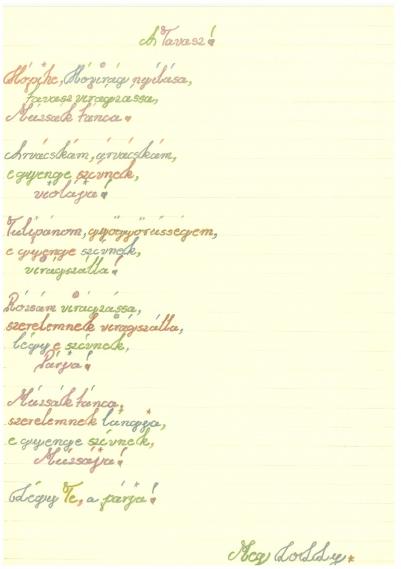 A Tavasz!
Hópihe, Hóvirág nyílása,
tavasz virágzása,
Múzsák tánca.
Árvácskám, árvácskám,
e gyenge szívnek,
violája!
Tulipánom, gyögyörűségem,
e gyenge szívnek,
virágszálla!
Rózsám virágzása,
szerelemnek virágszálla,
légy e szívnek,
Párja!
Múzsák tánca,
szerelemnek lángja,
e gyenge szívnek,
Múzsája!
Légy Te, a párja!
Meg